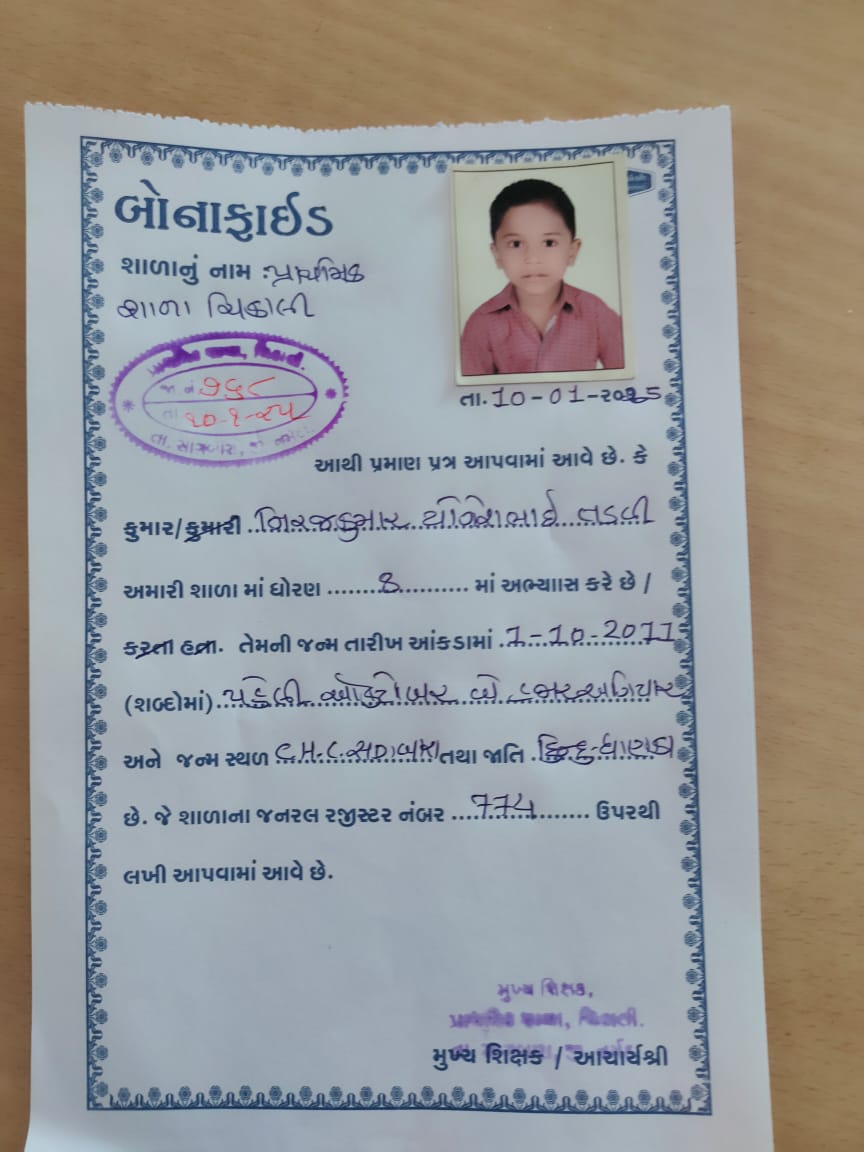 બોનાફાઇડ
શાળાનું નામ :પ્રાથમિક
શાળા ચિકાલી
જા.નં ૭૬૮
તા ૧૦-૧-૨૫
તા. સાગબારા, જી. નર્મદા.
તા.10-01-૨૦25
આથી પ્રમાણ પત્ર આપવામાં આવે છે. કે
કુમાર/કુમારી નિરજકુમાર યોગેશભાઈ તડવી
અમારી શાળા માં ધોરણ ........8.......... માં અભ્યાાસ કરે છે /
કરતા હતા. તેમની જન્મ તારીખ આંકડામાં .1-10-2011
(શબ્દોમાં) પહેલી ઓક્ટોબર બે હજાર અગિયાર
અને જન્મ સ્થળ C.H.C. સાગબારા તથા જાતિ .હિન્દુ-ધાણકા
છે. જે શાળાના જનરલ રજીસ્ટર નંબર ....774........ ઉપરથી
લખી આપવામાં આવે છે.
મુખ્ય શિક્ષક,
પ્રાથમિક શાળા, ચિકાલી.
મુખ્ય શિક્ષક / આચાર્યશ્રી